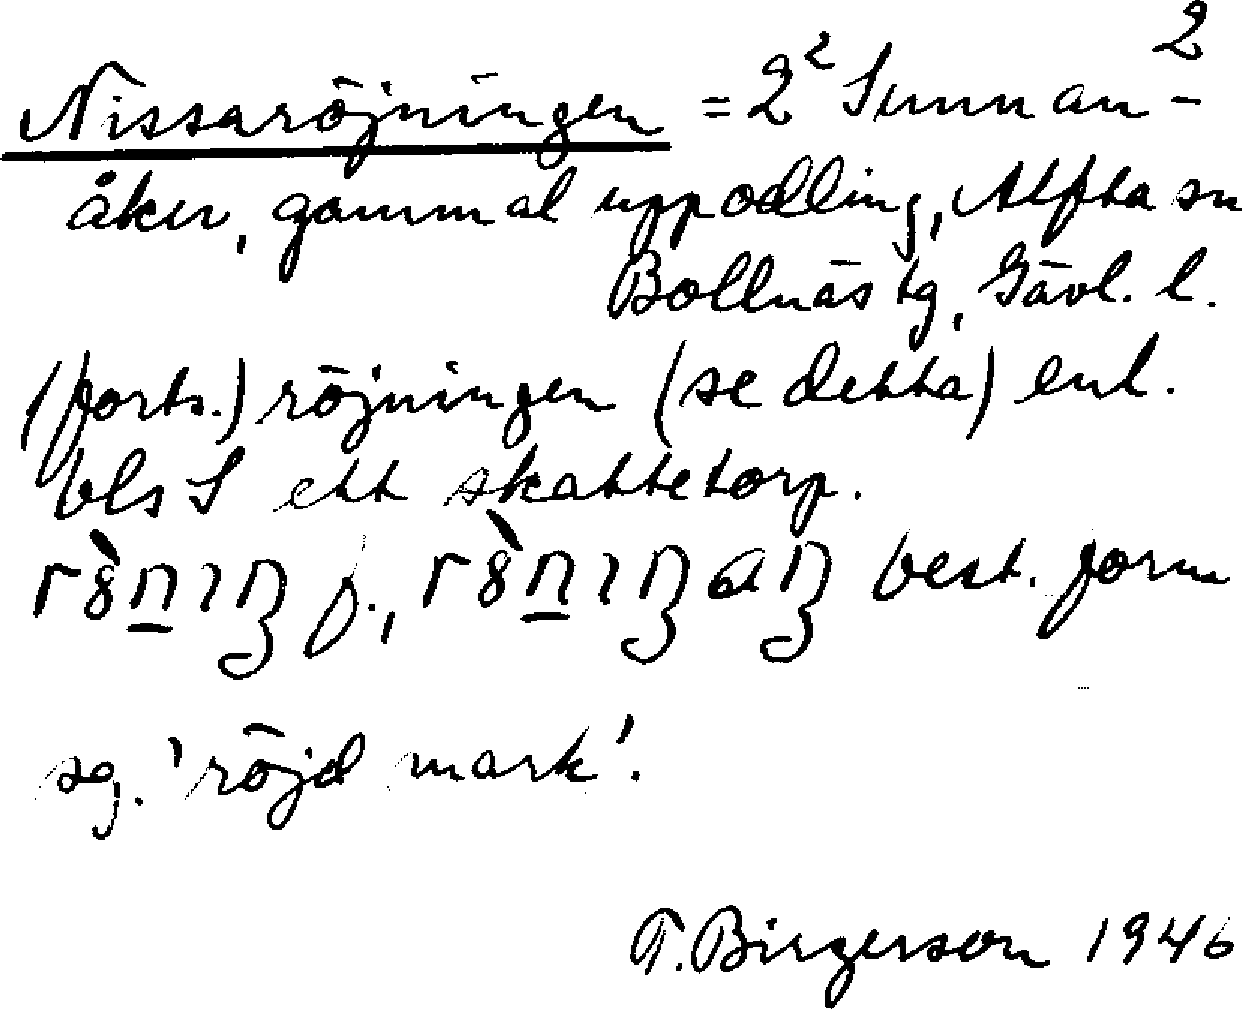 2
Nissaröjningen = 2² Sunnan-
åker, gammal uppodling, Alfta sn
Bollnäs tg, Gävl. l.
(forts.) röjningen (se detta) enl.
bls S ett skattetorp.
f., best. form
sg. 'röjd mark'.
T. Birgerson 1946